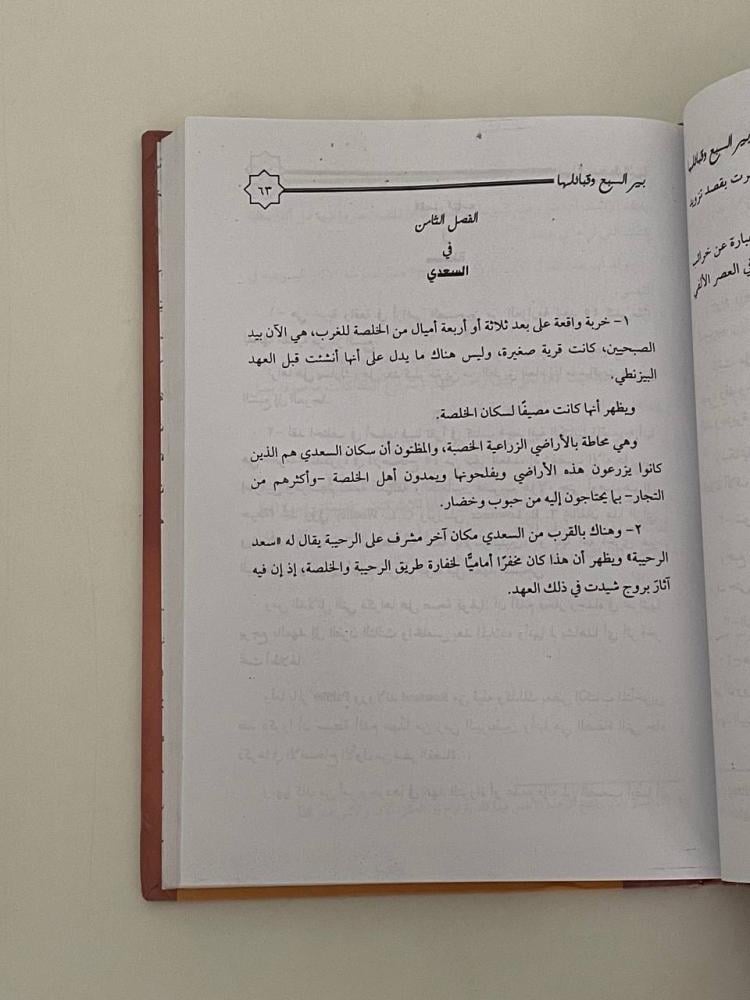 بير السبع وقبائلها
٦٣
الفصل الثامن
في
السعدي
١- خربة واقعة على بعد ثلاثة أو أربعة أميال من الخلصة للغرب، هي الآن بيد
الصبحيين، كانت قرية صغيرة، وليس هناك ما يدل على أنها أنشئت قبل العهد
البيزنطي.
ويظهر أنها كانت مصيفًا لسكان الخلصة.
وهي محاطة بالأراضي الزراعية الخصبة، والمظنون أن سكان السعدي هم الذين
كانوا يزرعون هذه الأراضي ويفلحونها ويمدون أهل الخلصة -وأكثرهم من
التجار- بما يحتاجون إليه من حبوب وخضار.
٢- وهناك بالقرب من السعدي مكان آخر مشرف على الرحيبة يقال له «سعد
الرحيبة» ويظهر أن هذا كان مخفرًا أماميًّا لخفارة طريق الرحيبة والخلصة، إذ إن فيه
آثارَ بروج شيدت في ذلك العهد.
بير السبع وقبائلها
بقصد تزويد
عبارة عن
في العصر